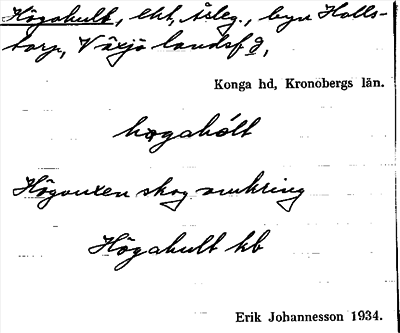 Högahult, ekt, Åsleg., byn Holls-
torp, Växjö landsf d,
Konga hd, Kronobergs län.
högahólt
Högvuxen skog omkring
Högahult kb
Erik Johannesson 1934.